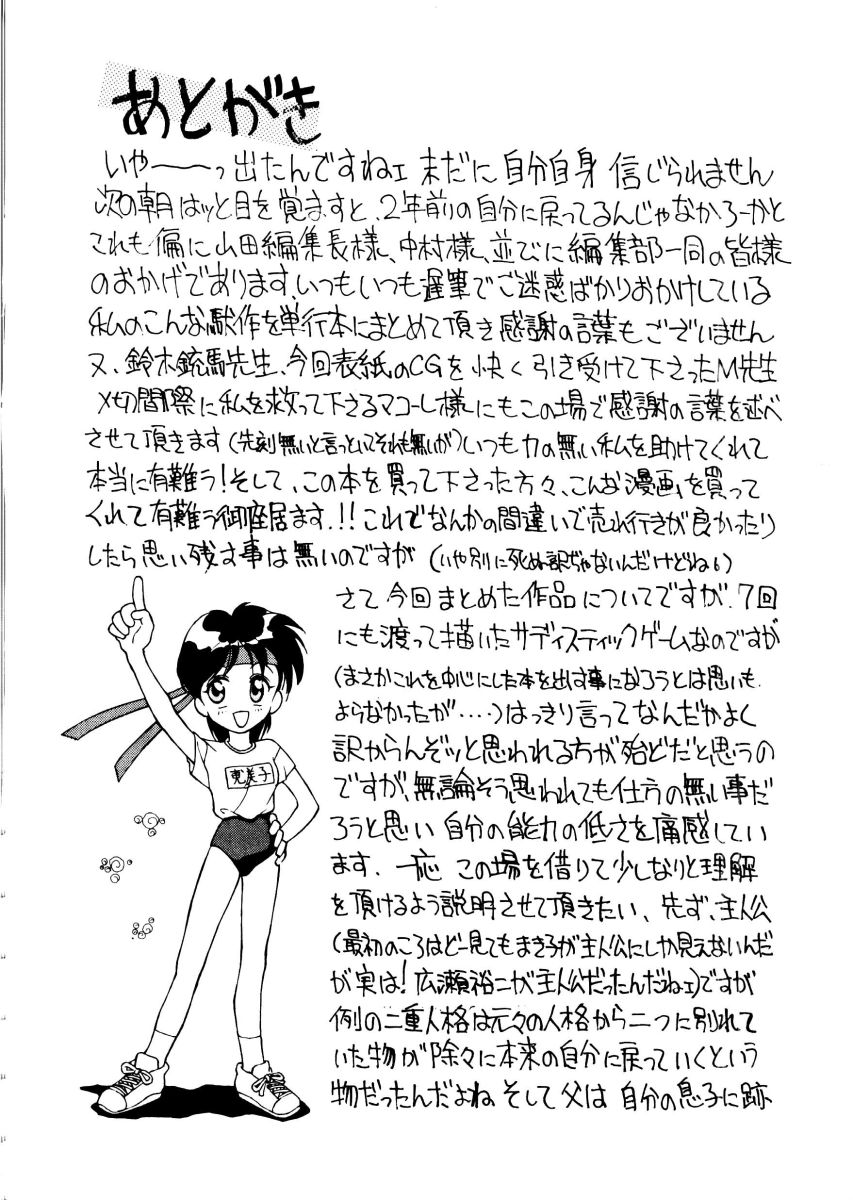 あとがき
いやーーっ出たんですねェ 未だに自分自身 信じられません
次の朝はッと目を覚ますと、2年前の自分に戻ってるんじゃなかろーかと
これも偏に山田編集長様、中村様、並びに編集部一同の皆様
のおかげであります、いつもいつも遅筆でご迷惑ばかりおかけしている
私のこんな駄作を単行本にまとめて頂き感謝の言葉もございません
又、鈴木銃馬先生、今回表紙のCGを快く引き受けて下さったM先生
〆切間際に私を救って下さるマコーレ様にもこの場で感謝の言葉を述べ
させて頂きます(先刻無いと言っといてそれも無いが)いつも力の無い私を助けてくれて
本当に有難う!そして、この本を買って下さった方々、こんな漫画を買って
くれて有難う御座居ます.!!これでなんかの間違いで売れ行きが良かったり
したら思い残す事は無いのですが(いや別に死ぬ訳ぢゃないんだけどね。)
さて今回まとめた作品についてですが、7回
にも渡って描いたサディスティックゲームなのですが
(まさかこれを中心にした本を出す事になろうとは思いも
よらなかったが‥‥)はっきり言ってなんだかよく
訳からんぞッと思われる方が殆どだと思うの
ですが、無論そう思われても仕方の無い事だ
ろうと思い 自分の能力の低さを痛感してい
ます.一応 この場を借りて少しなりと理解
を頂けるよう説明させて頂きたい、先ず、主人公
(最初のころはどー見てもまき子が主人公にしか見えないんだ
が実は!広瀬裕二が主人公だったんだねェ)ですが
例の二重人格は元々の人格から二つに別れて
いた物が除々に本来の自分に戻っていくという
物だったんだよね そして父は 自分の息子に跡
恵美子